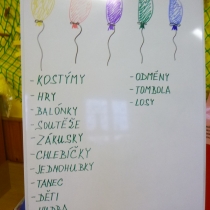 - KOSTÝMY
- HRY
- BALÓNKY
- SOUTĚŽE
- ZÁKUSKY
- CHLEBÍČKY
- JEDNOHUBKY
- TANEC
- DĚTI
- HUDBA
- ODMĚNY
- TOMBOLA
- LOSY